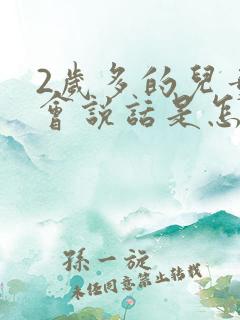 2歲多的兒
會說話是怎
孫一旋
未經同意禁止轉載